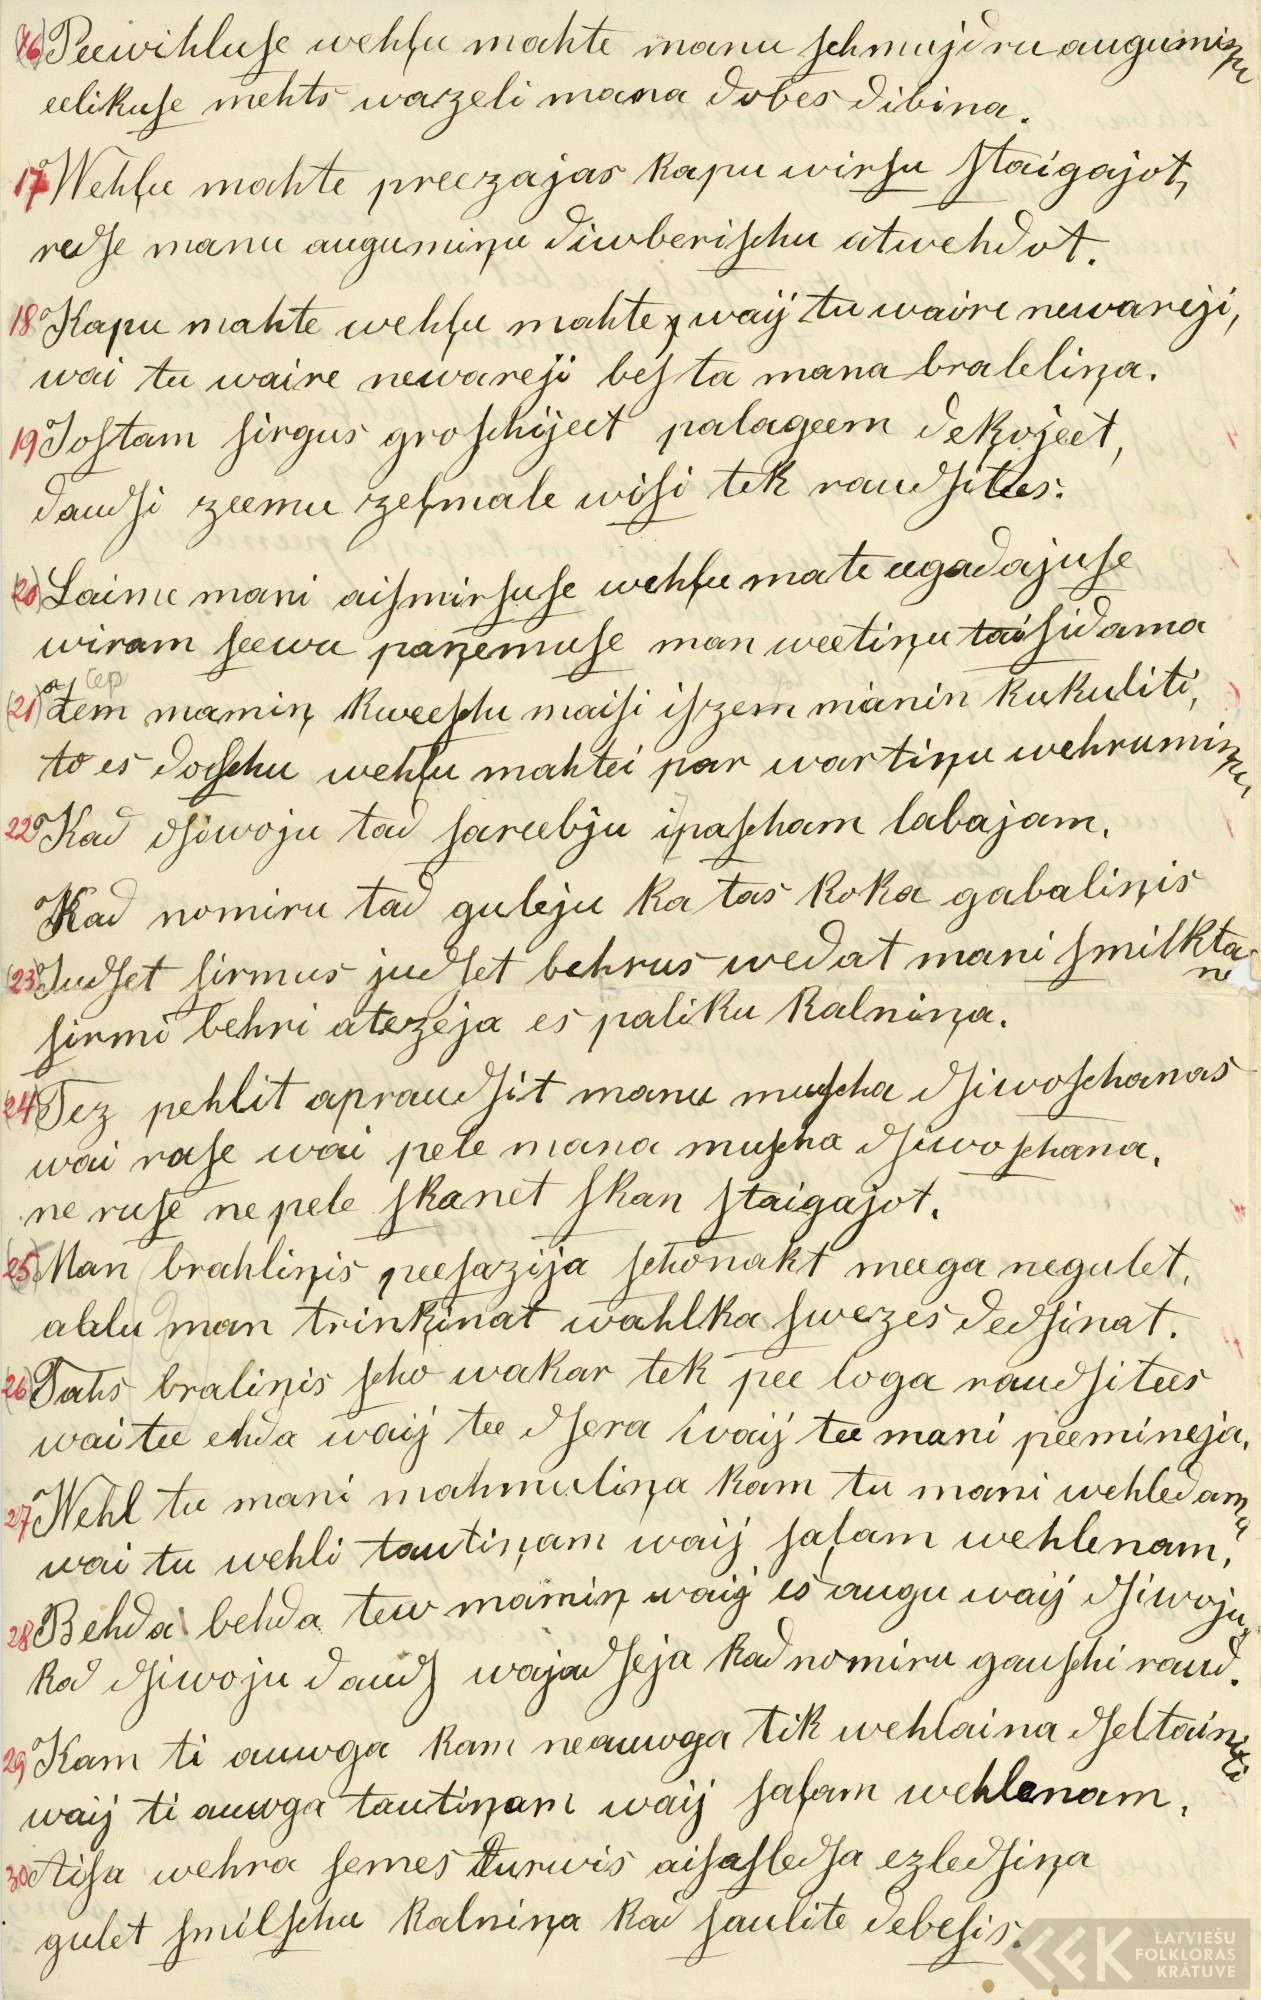 16) Peewihluse wehļu mahte manu schmujdru augumiņu
eelikuse mehts wazeli mana dobes dibina.
17 Wehļu mahte preezajas kapu wirsu staigajot,
redse manu augumiņu diwberischu atwehdot.
18 Kapu mahte wehļu mahte, waij tu waire newareji,
wai tu waire newareji bes ta mana braleliņa.
19 Jostam sirgus groschijeet palageem deķojeet,
daudsi zeemu zeļmale wisi tek raudsitees.
20) Laime mani aismirsuse wehļu mate eegadajuse
wiram seewu paņemuse man weetiņu taisidama
cep
(21) Zem mamiņ kweeschu maisi iszem manin kukuliti,
to es doschu wehļu mahtei par wartiņu wehrumiņu,
22 Kad dsiwoju tad sareebju ipascham labajam.
Kad nomiru tad guleju ka tas koka gabaliņis
(23) Judset sirmus judset behrus wedat mani smilktane
sirmi behri atezeja es paliku kalniņa.
(24) Tez pehlit apraudsit manu muscha dsiwoschanas
wai rase wai pele mana muscha dsiwoschana.
ne ruse ne pele skanet skan staigajot.
(25) Man brahliņis peesazija schonakt meega negulet,
allu man trinķinat wahlka swezes dedsinat.
(26) Tahs braliņis scho wakar tek pee loga raudsitees
wai tee ehda waij tee dsera waij tee mani peemineja.
27 Wehl tu mani mahmuliņa kam tu mani wehledama
wai tu wehli tautiņam waij saļam wehlenam.
28 Behda behda tew mamiņ waij es augu waij dsiwoju,
kad dsiwoju dauds wajadseja kad nomiru gauschi raud.
29 Kam ti auwga kam neauwga tik wehlaina dseltainiti
waij ti auwga tautiņam waij saļam wehlenam.
30 Aisa wehra semes durwis aisasledsa ezledsiņa
gulet smilschu kalniņa kad saulite debesis.
LATVIEŠU
FOLKLORAS
KRĀTUVE